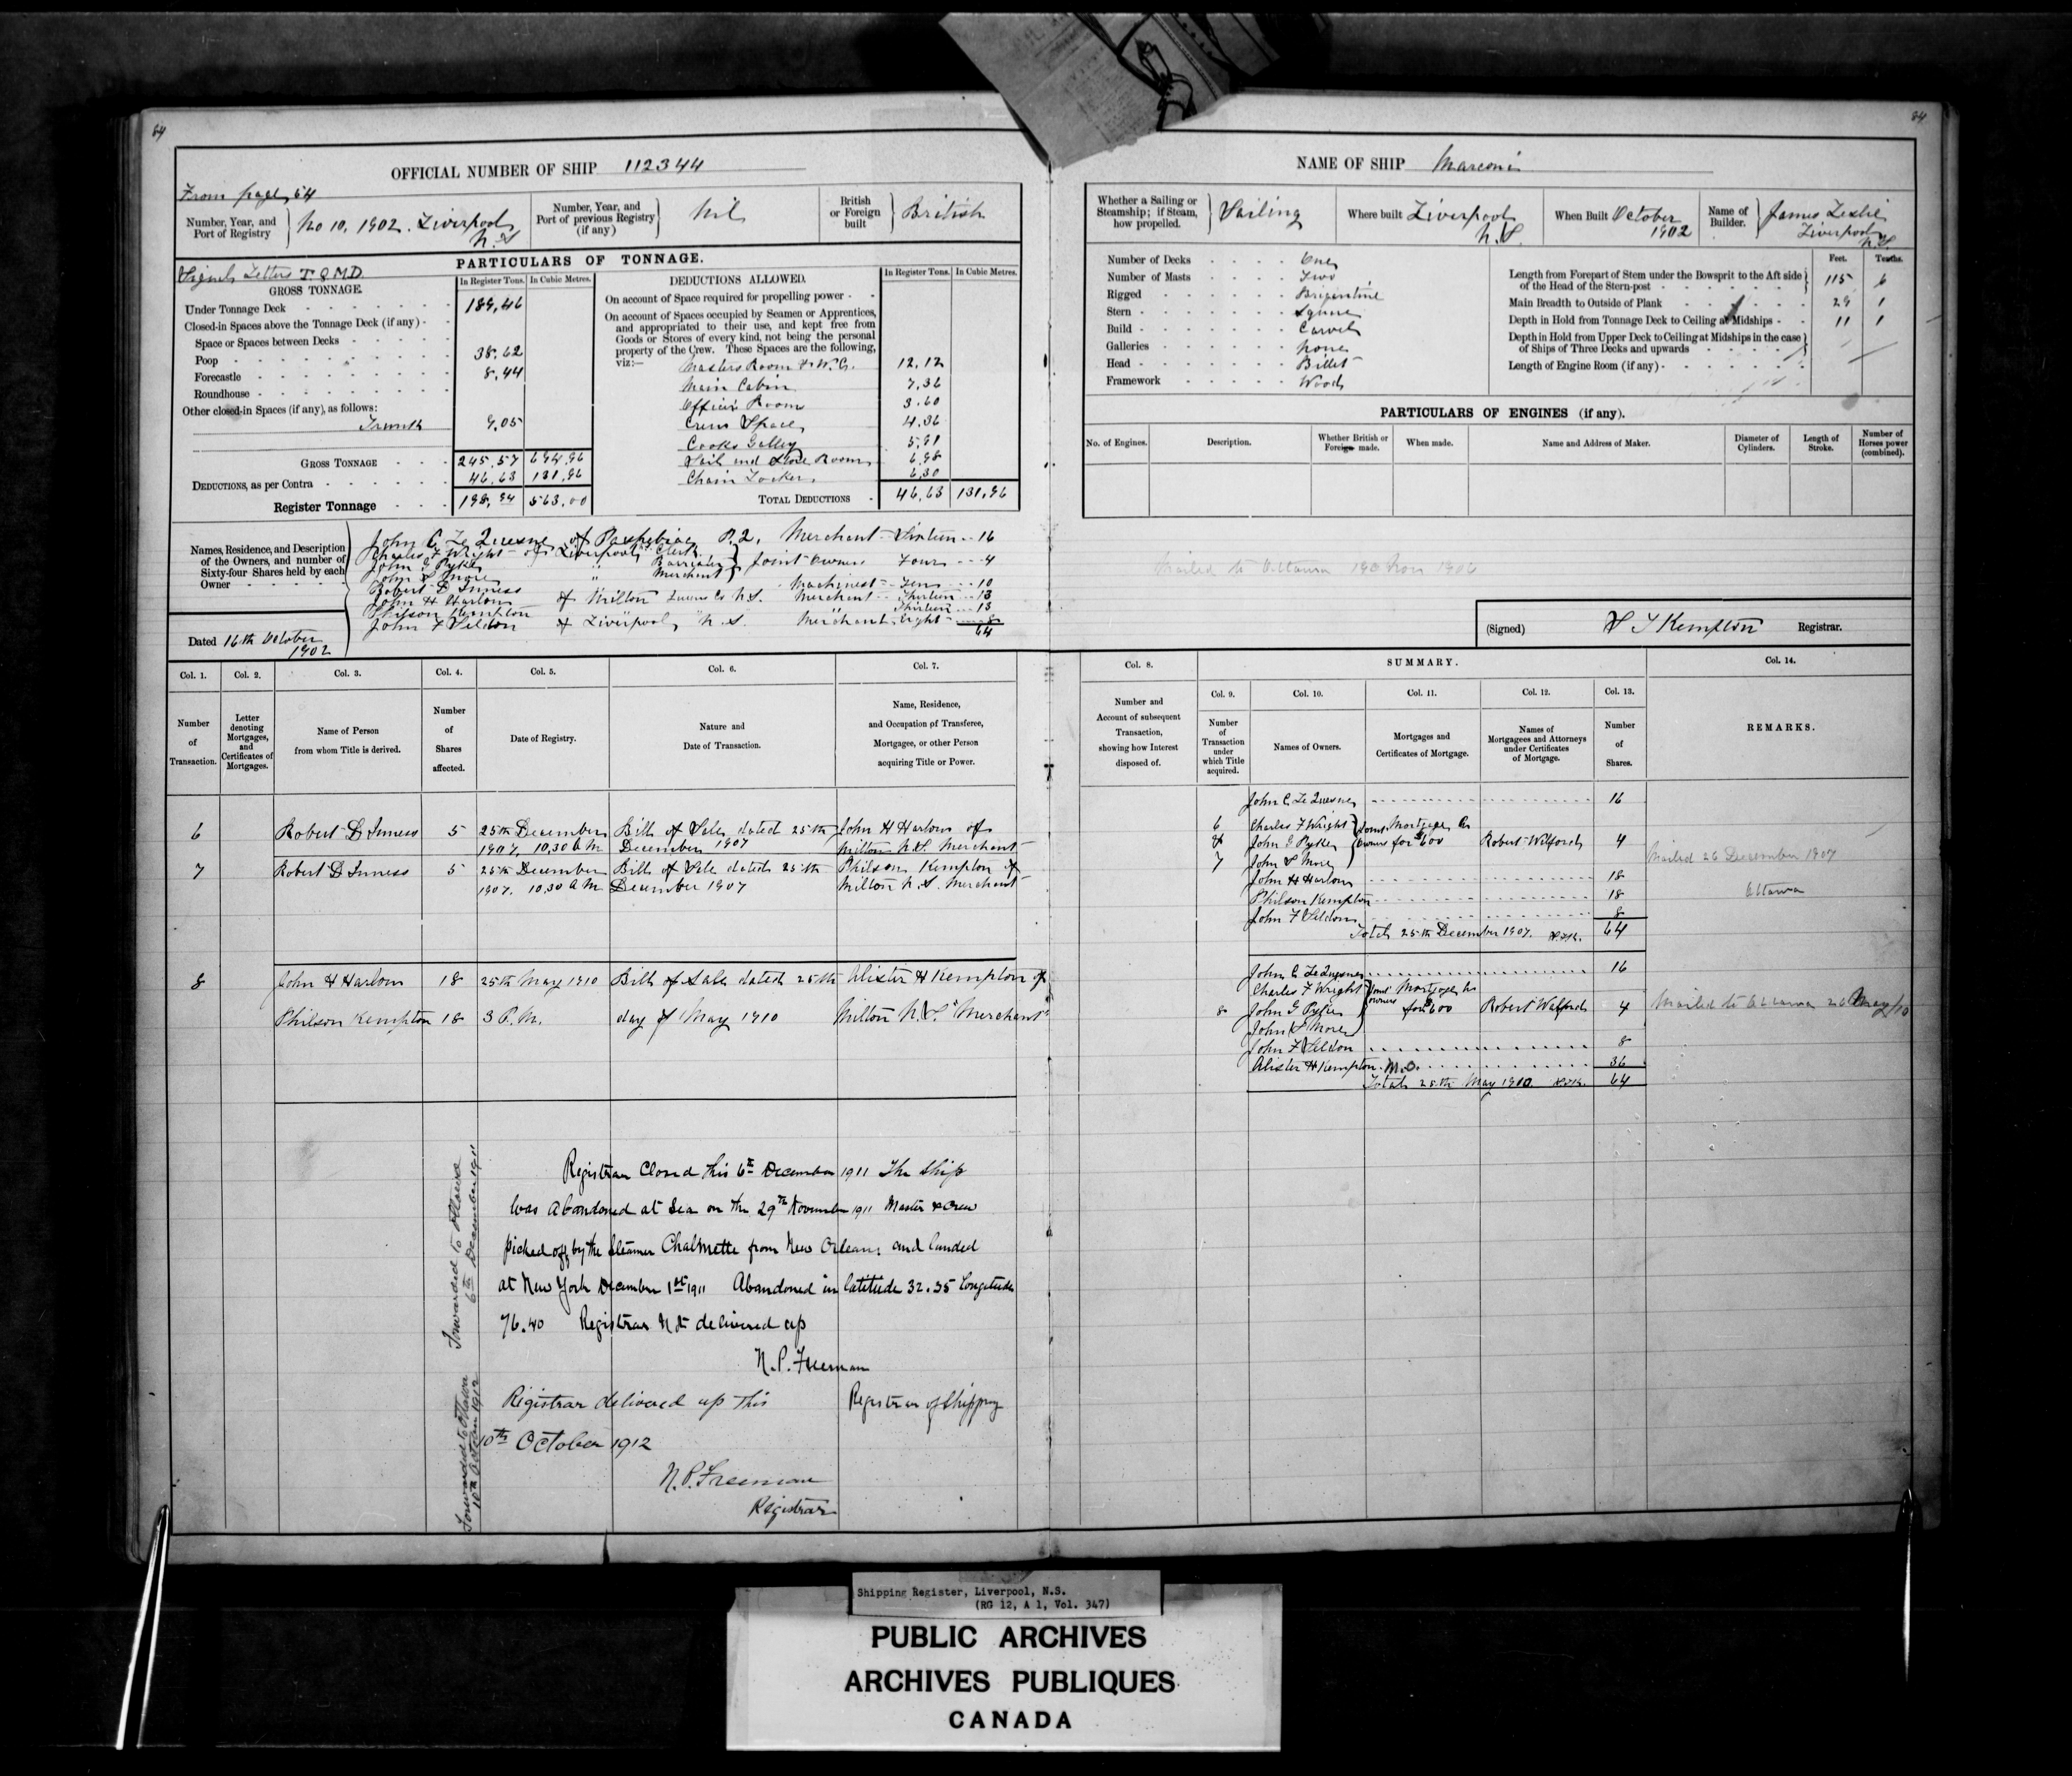 84
OFFICIAL NUMBER OF SHIP 112344
From page 54
Number, Year, and Port of Registry } No 10, 1902. Liverpool N.S
Number, Year, and Port of previous Registry (if any) } Nil
British or Foreign built } British
PARTICULARS OF TONNAGE.
Signal Letters T.Q.M.D.
GROSS TONNAGE.
In Register Tons. In Cubic Metres.
Under Tonnage Deck 189,46
Closed-in Spaces above the Tonnage Deck (if any)
Space or Spaces between Decks
Poop 38.62
Forecastle 8,44
Roundhouse
Other closed-in Spaces (if any), as follows:
9,05
GROSS TONNAGE 245,57 694,96
DEDUCTIONS, as per Contra 46,63 131,96
Register Tonnage 198,94 563,00
DEDUCTIONS ALLOWED.
In Register Tons. In Cubic Metres.
On account of Space required for propelling power
On account of Spaces occupied by Seamen or Apprentices, and appropriated to their use, and kept free from Goods or Stores of every kind, not being the personal property of the Crew. These Spaces are the following, viz:—
Masters Room & W.C. 12,12
Main Cabin 7,36
Officers Room 3.60
Crew Space 4.36
Cooks Galley 5,91
Sail and Store Room 6,98
Chain Locker 6,30
TOTAL DEDUCTIONS 46,63 131,96
Names, Residence, and Description of the Owners, and number of Sixty-four Shares held by each Owner
John C. Le Quesne of Paspebiac P.Q. Merchant Sixteen 16
Charles F Wright of Liverpool N.S. Clerk
John G Pyke " Barrister } Joint Owners Four 4
John S More " Merchant
Robert D Inness Machinist Ten 10
John H Harlow of Milton Queens Co N.S. Merchant Thirteen 13
Philson Kempton Thirteen 13
John F Seldon of Liverpool N.S. Merchant Eight 8
64
Dated 16th October 1902
Col. 1. Col. 2. Col. 3. Col. 4. Col. 5. Col. 6. Col. 7.
Number of Transaction.
Letter denoting Mortgages, and Certificates of Mortgages.
Name of Person from whom Title is derived.
Number of Shares affected.
Date of Registry.
Nature and Date of Transaction.
Name, Residence, and Occupation of Transferee, Mortgagee, or other Person acquiring Title or Power.
6 Robert D Inness 5 25th December Bill of Sale dated 25th John H Harlow of
1907, 10.30 A.M December 1907 Milton N.S. Merchant
7 Robert D Inness 5 25th December Bill of Sale dated 25th Philson Kempton of
1907. 10.30 A M December 1907 Milton N.S. Merchant
8 John H Harlow 18 25th May 1910 Bill of Sale dated 25th Alister H Kempton of
Philson Kempton 18 3 P.M. day of May 1910 Milton N.S. "Merchant"
Registrar Closed this 6th December 1911 The Ship
was Abandoned at Sea on the 29th November 1911 Master & Crew
picked off by the steamer Chalmette from New Orleans and landed
at New York December 1st 1911 Abandoned in latitude 32.35 Longitude
76.40 Registrar Not delivered up
N.P. Freeman
Registrar of Shipping
Registrar delivered up this
10th October 1912
N.P. Freeman
Registrar
Forwarded to Ottawa
6th December 1911
Forwarded to Ottawa
10th October 1912
84
NAME OF SHIP Marconi
Whether a Sailing or Steamship; if Steam, how propelled. } Sailing
Where built Liverpool N.S.
When Built October 1902
Name of Builder. } James Leslie Liverpool N.S.
Number of Decks One
Number of Masts Two
Rigged Brigantine
Stern Square
Build Carvel
Galleries None
Head Billet
Framework Wood
Feet. Tenths.
Length from Forepart of Stem under the Bowsprit to the Aft side of the Head of the Stern-post 115 6
Main Breadth to Outside of Plank 29 1
Depth in Hold from Tonnage Deck to Ceiling at Midships 11 1
Depth in Hold from Upper Deck to Ceiling at Midships in the case of Ships of Three Decks and upwards
Length of Engine Room (if any)
PARTICULARS OF ENGINES (if any).
No. of Engines. Description. Whether British or Foreign made. When made. Name and Address of Maker. Diameter of Cylinders. Length of Stroke. Number of Horses power (combined).
Mailed to Ottawa Nov 1906
(Signed) Kempton Registrar.
Col. 8. SUMMARY. Col. 14.
Col. 9. Col. 10. Col. 11. Col. 12. Col. 13.
Number and Account of subsequent Transaction, showing how Interest disposed of.
Number of Transaction under which Title acquired.
Names of Owners.
Mortgages and Certificates of Mortgage.
Names of Mortgagees and Attorneys under Certificates of Mortgage.
Number of Shares.
REMARKS.
John C Le Quesne 16
6 Charles F Wright } Joint Mortgage A
& John G Pyke } Owners for $600 Robert Wilford 4
7 John S More
Mailed 26 December 1907
John H Harlow 18
Philson Kempton 18 Ottawa
John F Seldon 8
Total 25th December 1907. 64
John C Le Quesne 16
Charles F Wright } Joint Mortgage A
8 John G Pyke } owners for $600 Robert Walford 4 Mailed to Ottawa 26 May/10
John S More
John F Seldon 8
Alister H Kempton. M.O. 36
Total 25th May 1910 64
Shipping Register, Liverpool, N.S.
(RG 12, A 1, Vol. 347)
PUBLIC ARCHIVES
ARCHIVES PUBLIQUES
CANADA